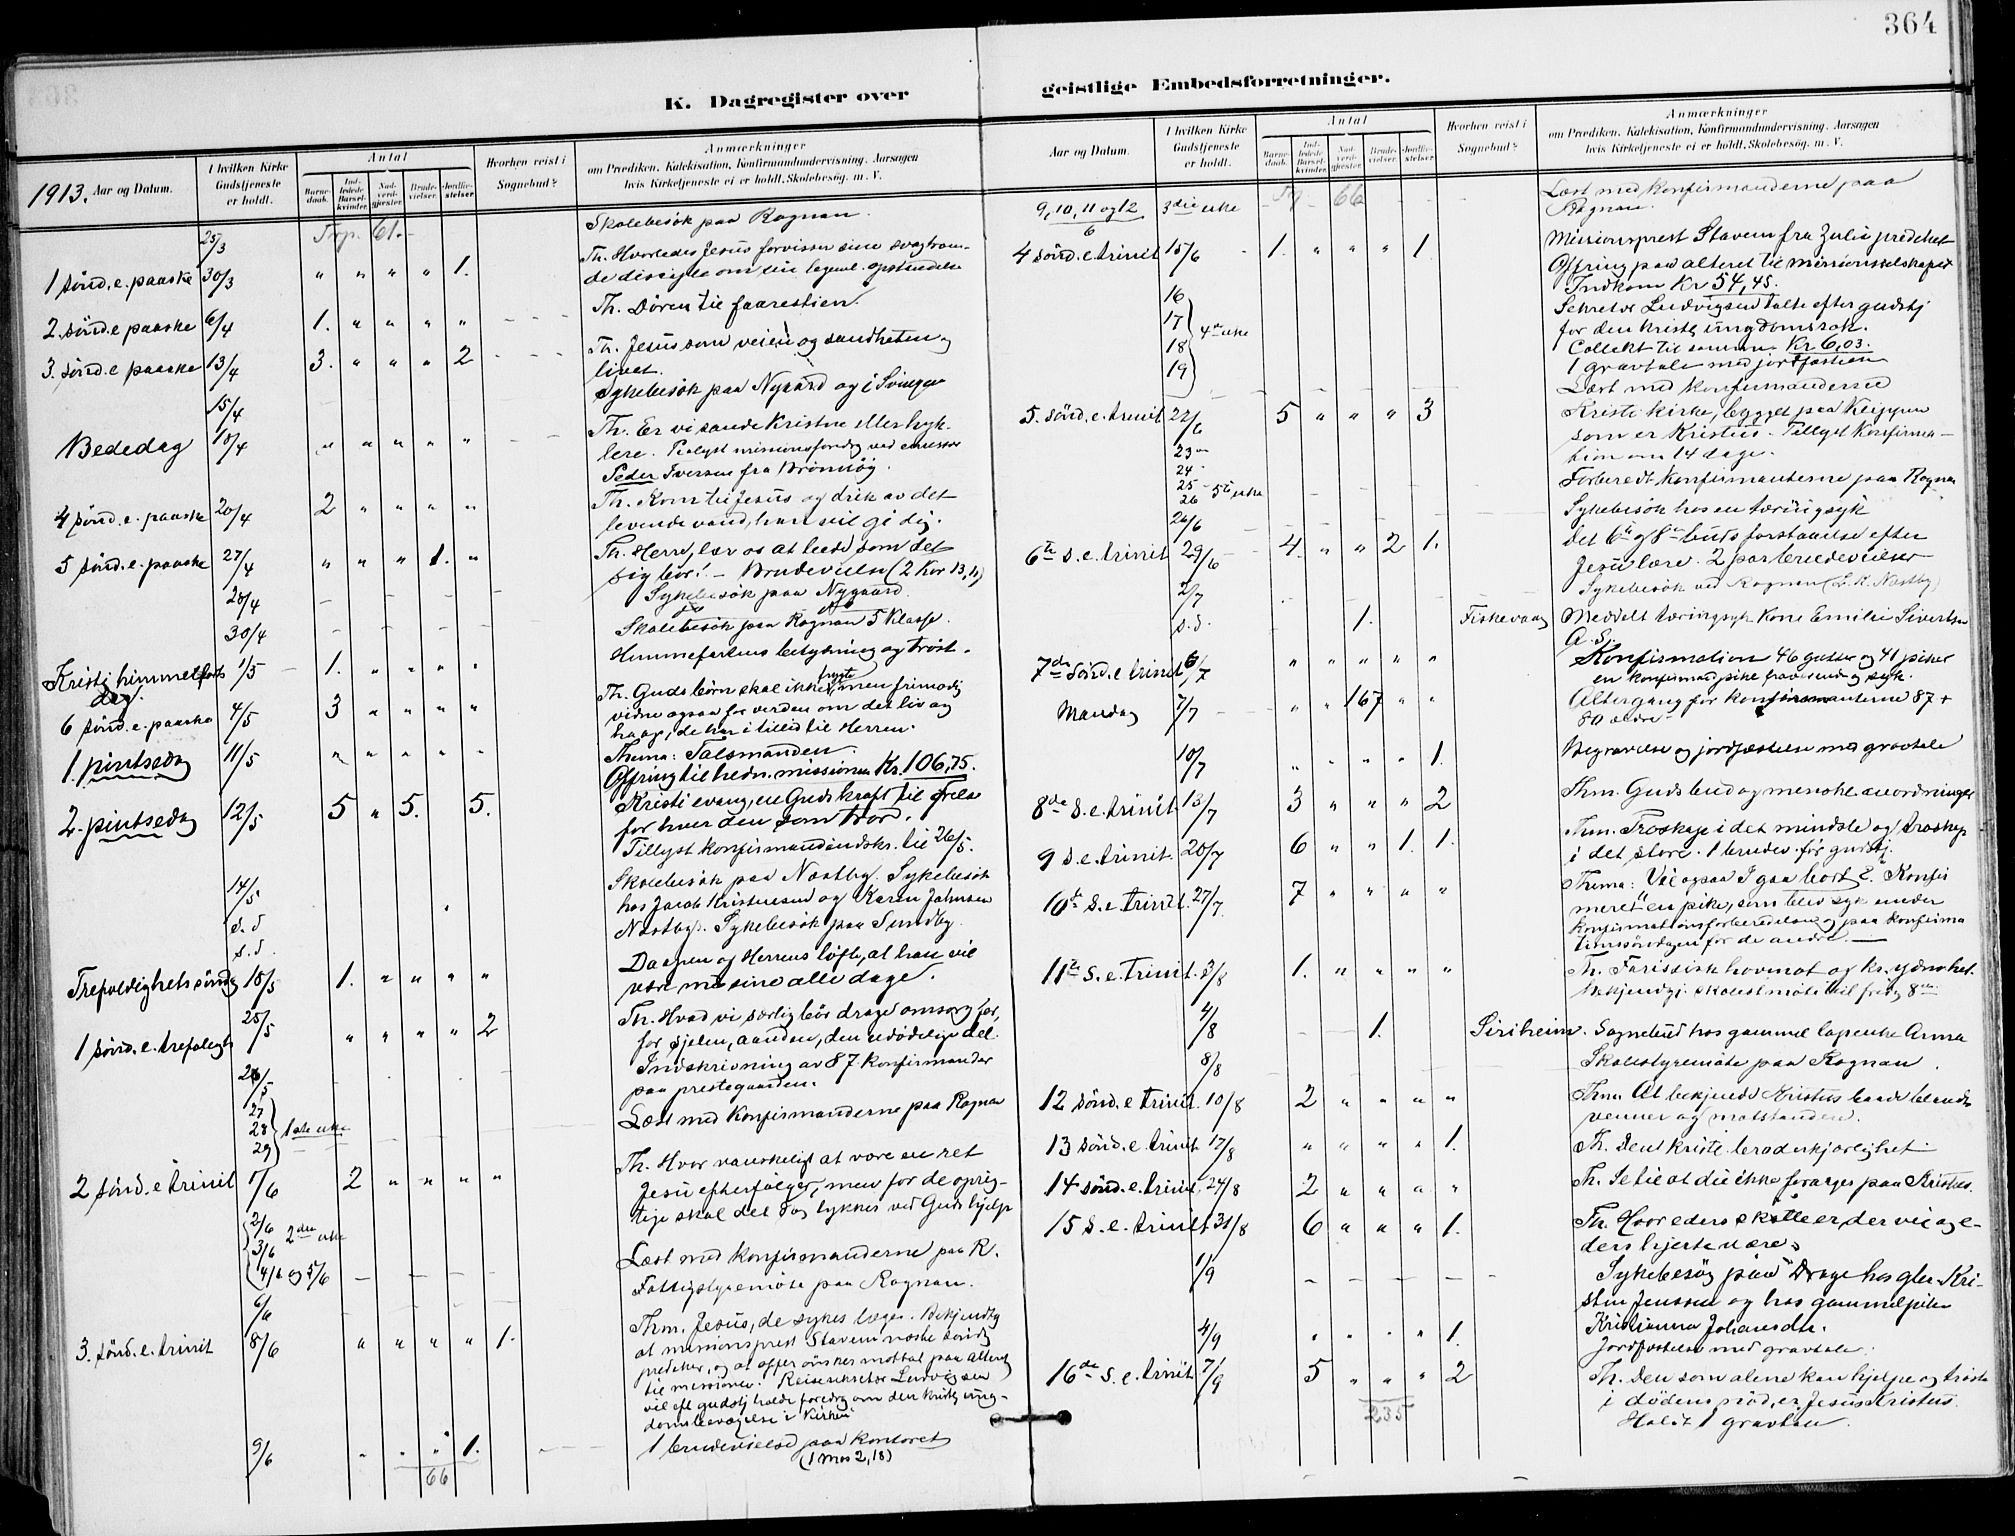 364
K. Dagregister over
geistlige Embedsforretninger.
1913. Aar og Datum.
I hvilken Kirke Gudstjeneste er holdt.
Antal
Barnedaab.
Indledede Barselkvinder.
Nadverdgjester.
Brudevielser.
Jordfæstelser.
Hvorhen reist i Sognebud?
Anmærkninger
om Prædiken, Katekisation, Konfirmandundervisning, Aarsagen
hvis Kirketjeneste ei er holdt, Skolebesøg, m. V.
25/3 Trp. 61. Skolebesök paa Rognan.
1 sönd. e. paaske 30/3 " " " " 1. Th. Hvorledes Jesus forvisser sine svagtroen-
de disciple om sin legeml. opstandelse
2. sönd. e paaske 6/4 1. " " " " Th. Dören til faarestien.
3. sönd. e paaske 13/4 3. " " " 2 Th. Jesus som veien og sandheten og
livet.
15/4 Sykebesök paa Nygaard og i Svingen
Bededag 18/4 " " " " " Th. Er vi sande Kristne eller hyk-
lere. Tillyst missionsforedrag ved emissær
Peder Iversen fra Brönnöy.
4 sönd. e. paaske 20/4 2 " " " " Th. Kom til Jesus og drik av det
levende vand, han vil gi dig.
5 sönd. e. paaske 27/4 " " " 1. " Th. Herre, lær os at bede, som det
sig bör! – Brudevielse (2 Kor 13, 11)
28/4 Sykebesök paa Nygaard.
30/4 Skolebesök paa Rognan 5 Klasse.
Kristi himmelfarts
dag. 1/5 1. " " " " Himmelfartens betydning og tröst.
6 sönd. e. paaske 4/5 3 " " " " Th. Guds börn skal ikke frygte, men frimodig
vidne ogsaa for verden om det liv og
haap, de har i tillid til Herren.
1. pintsedag 11/5 " " " " " Thema: Talsmanden.
Offring til hedn. missionen Kr. 106,75.
2. pintsedag 12/5 5 " 5. 5. Kristi evang. en Guds kraft til frelse
for hver den som tror.
Tillyst konfirmandindskr. til 26/5.
14/5 Skolebesök paa Nestby. Sykebesök
s. d hos Jacob Kristensen og Karen Johnsen
s. d. Nestby. Sykebesök paa Sundby.
Trefoldighetssöndag 18/5 1. " " " " Daapen og Herrens löfte, at han vil
være med sine alle dage.
1 sönd. e. trefoldigh 25/5 " " " " 2 Th. Hvad vi særlig bör drage omsorg for,
for sjelen, aanden, den udödelige del.
26/5 Indskrivning av 87 konfirmander
paa prestegaarden.
27
28 1ste uke
29 Læst med Konfirmanderne paa Rognan
2 sönd. e trinit 1/6 2 " " " " Th. Hvor vanskeligt at være en ret
Jesu efterfölger, men for de oprig-
tige skal det dog lykkes ved Guds hjelp
2/6 2den uke
3/6
4/6 og 5/6 Læst med konfirmanderne paa R.
6/6 Fattigstyremöte paa Rognan.
3. sönd. e. trinit 8/6 " " " " 1. Thm. Jesus, de sykes læge. Bekjendtg
at missionsprest Stavem næste söndag
prediker, og at offer önskes mottat paa alteret
til missionen. Reisesekretær Ludvigsen
vil eft gudstj holde foredrag om den kristelig ung-
domsbevægelse i Kirken
9/6 " " " 1. 1 brudevielse paa kontoret
(1 Mos 2, 18)
66
Aar og Datum.
I hvilken Kirke Gudstjeneste er holdt.
Antal
Barnedaab.
Indledede Barselkvinder.
Nadverdgjester.
Brudevielser.
Jordfæstelser.
Hvorhen reist i Sognebud?
Anmærkninger
om Prædiken, Katekisation, Konfirmandundervisning, Aarsagen
hvis Kirketjeneste ei er holdt, Skolebesøg, m. V.
9, 10, 11 og 12/6 3die uke 66 Læst med konfirmanderne paa
Rognan.
4 sönd. e. trinit 15/6 1. " " " 1. Missionsprest Stavem fra Zulu prediket
Offring paa alteret til missionsselskapet
Indkom Kr 54,45.
Sekretær Ludvigsen talte efter gudstj
for den kristelig ungdomssak.
Collekt til samme Kr 6,03.
1 gravtale med jordfæstelsen
16
17
18 4de uke
19 Læst med konfirmanderne
5 sönd. e. trinit 22/6 5 " " " 3 Kristi kirke, bygget paa Klippen
som er Kristus. Tillyst Konfirma-
tion om 14 dage.
23
24
25 5te uke
26 Forberedt konfirmanterne paa Rognan
26/6 Sykebesök hos en tæringsyk
6te s. e. trinit 29/6 4. " " 2 1. det 6te og 8de buds forstaaelse efter
Jesu lære. 2 par brudevielser
2/7 Sykebesök ved Rognan
s. d. 1. Fiskevaag Meddelt tæringsyk Kone Emilie Sivertsen
A. S.
7de sönd. e trinit 6/7 " " " " " Konfirmation 46 gutter og 41 piker
en konfirmand pike fraværende syk.
Mandag 7/7 " " 167 " " Altergang for konfirmanterne 87 +
80 andre.
10/7 " " " " 1. Begravelse og jordfæstelse med gravtale
8de s. e. trinit. 13/7 3 " " " 2 Thm. Guds bud og menskel. anordninger
9 s. e. trinit. 20/7 6 " " 1. 1. Thm. Troskap i det mindste og troskap
i det store. 1 brudev. för gudstj.
10de s. e. trinit. 27/7 7 " " " " Thema: Vil ogsaa I gaa bort? Konfir
meret en pike, som blev syk under
konfirmationsforberedelsen og paa konfirma
tionssöndagen for de andre.
11te s. e. trinit. 3/8 1. " " " " Th. Fariseisk hovmot og kr. ydmyhet.
Bekjendtgj. skolestmöte til fredag 8de
4/8 1. Siriheim. Sognebud hos gammel lapenke Anna
8/8 Skolestyremöte paa Rognan.
12 sönd. e trinit. 10/8 2 " " " " Thm. At bekjende Kristus baade blandt
venner og motstandere.
13 sönd. e. trinit. 17/8 " " " " 1. Th. Den kristl. broderkjærlighet.
14 sönd. e. trinit. 24/8 2 " " " " Th. Se til at du ikke forarges paa Kristus.
15 s. e. trinit. 31/8 6 " " " 1. Th. Hvor eders skatte er, der vil og e-
ders hjerte være.
1/9 Sykebesög paa Drage hos glm. Kri-
stin Jenssen og hos gammel piken
Kristianna Johansdtr.
4/9 " " " " 1. Jordfæstelse med gravtale.
16de s. e. trinit 7/9 5 " " " 2 Th. Den som alene kan hjelpe og tröste
i dödens nöd, er Jesus Kristus.
Holdt 1 gravtale.
235